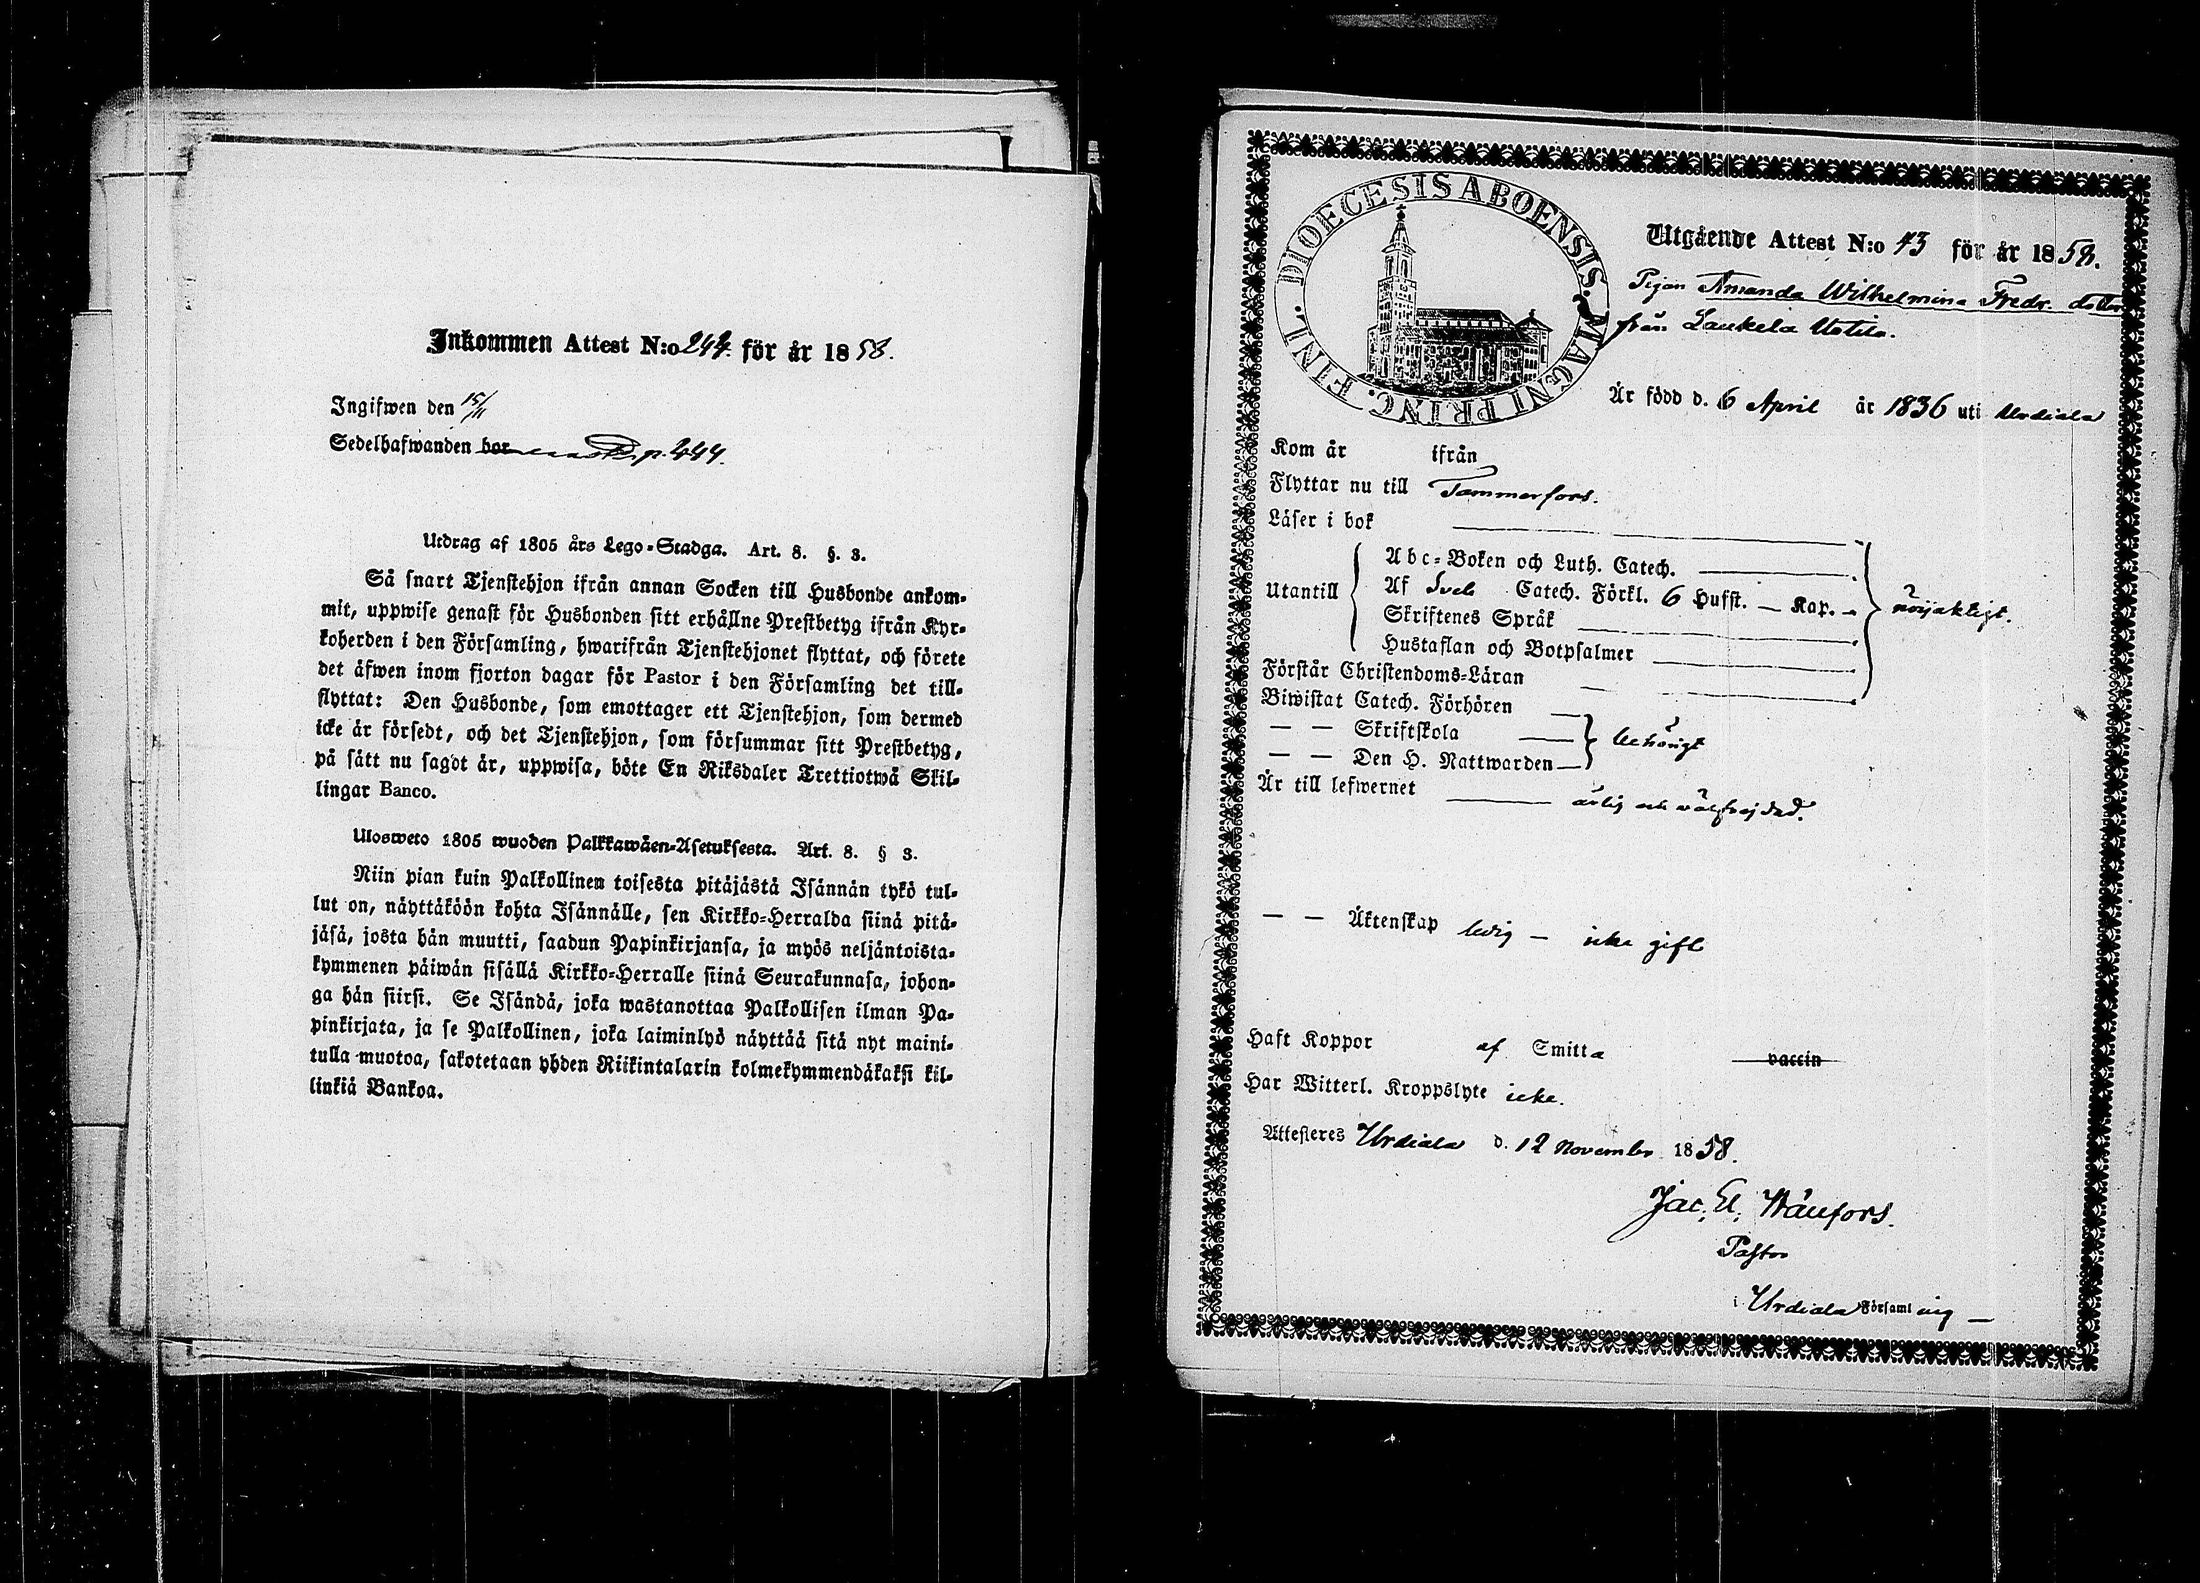 Inkommen Attest N:o 244. för år 1858.
Ingifwen den 15/11
Sedelhafwanden bor p. 444.
Utdrag af 1805 års Lego-Stadga. Art. 8. §. 3.
Så snart Tjenstehjon ifrån annan Socken till Husbonde ankom-
mit, uppwise genast för Husbonden sitt erhållne Prestbetyg ifrån Kyr-
koherden i den Församling, hwarifrån Tjenstehjonet flyttat, och förete
det äfwen inom fjorton dagar för Pastor i den Församling det till-
flyttat: Den Husbonde, som emottager ett Tjenstehjon, som dermed
icke är försedt, och det Tjenstehjon, som försummar sitt Prestbetyg,
på sätt nu sagdt är, uppwisa, böte En Riksdaler Trettiotwå Skil-
lingar Banco.
Ulosweto 1805 wuoden Palkkawäen-Asetuksesta. Art. 8. § 3.
Niin pian kuin Palkollinen toisesta pitäjästä Isännän tykö tul-
lut on, näyttäköön kohta Isännälle, sen Kirkko-Herralda siinä pitä-
jäsä, josta hän muutti, saadun Papinkirjansa, ja myös neljäntoista-
kymmenen päiwän sisällä Kirkko-Herralle siinä Seurakunnasa, johon-
ga hän siirsi. Se Isändä, joka wastanottaa Palkollisen ilman Pa-
pinkirjata, ja se Palkollinen, joka laiminlyö näyttää sitä nyt maini-
tulla muotoa, sakotetaan yhden Riikintalarin kolmekymmendäkaksi kil-
linkiä Bankoa.
DIOECESIS ABOENSIS. MAGNI PRINC. FINL.
Utgående Attest N:o 43 för år 1858.
Pigan Amanda Wilhelmina Fredr. dotter
från Laukela Uotila.
Är född d. 6 April år 1836 uti Urdiala
Kom år ifrån
Flyttar nu till Tammerfors.
Läser i bok
Abc-Boken och Luth. Catech.
Utantill Af Sveb Catech. Förkl. 6 Hufst. — Kap. - nöjaktigt.
Skriftenes Språk
Hustaflan och Botpsalmer
Förstår Christendoms-Läran
Biwistat Catech. Förhören
— — Skriftskola behörigt
— — Den H. Nattwarden
Är till lefwernet ärlig och välfrejdad.
— — Äktenskap ledig — icke gift
Haft Koppor af Smitta vaccin
Har Witterl. Kroppslyte icke.
Attesteres Urdiala d. 12 November 1858.
Jac. El. Wänfors.
Pastor
i Urdiala Församling —